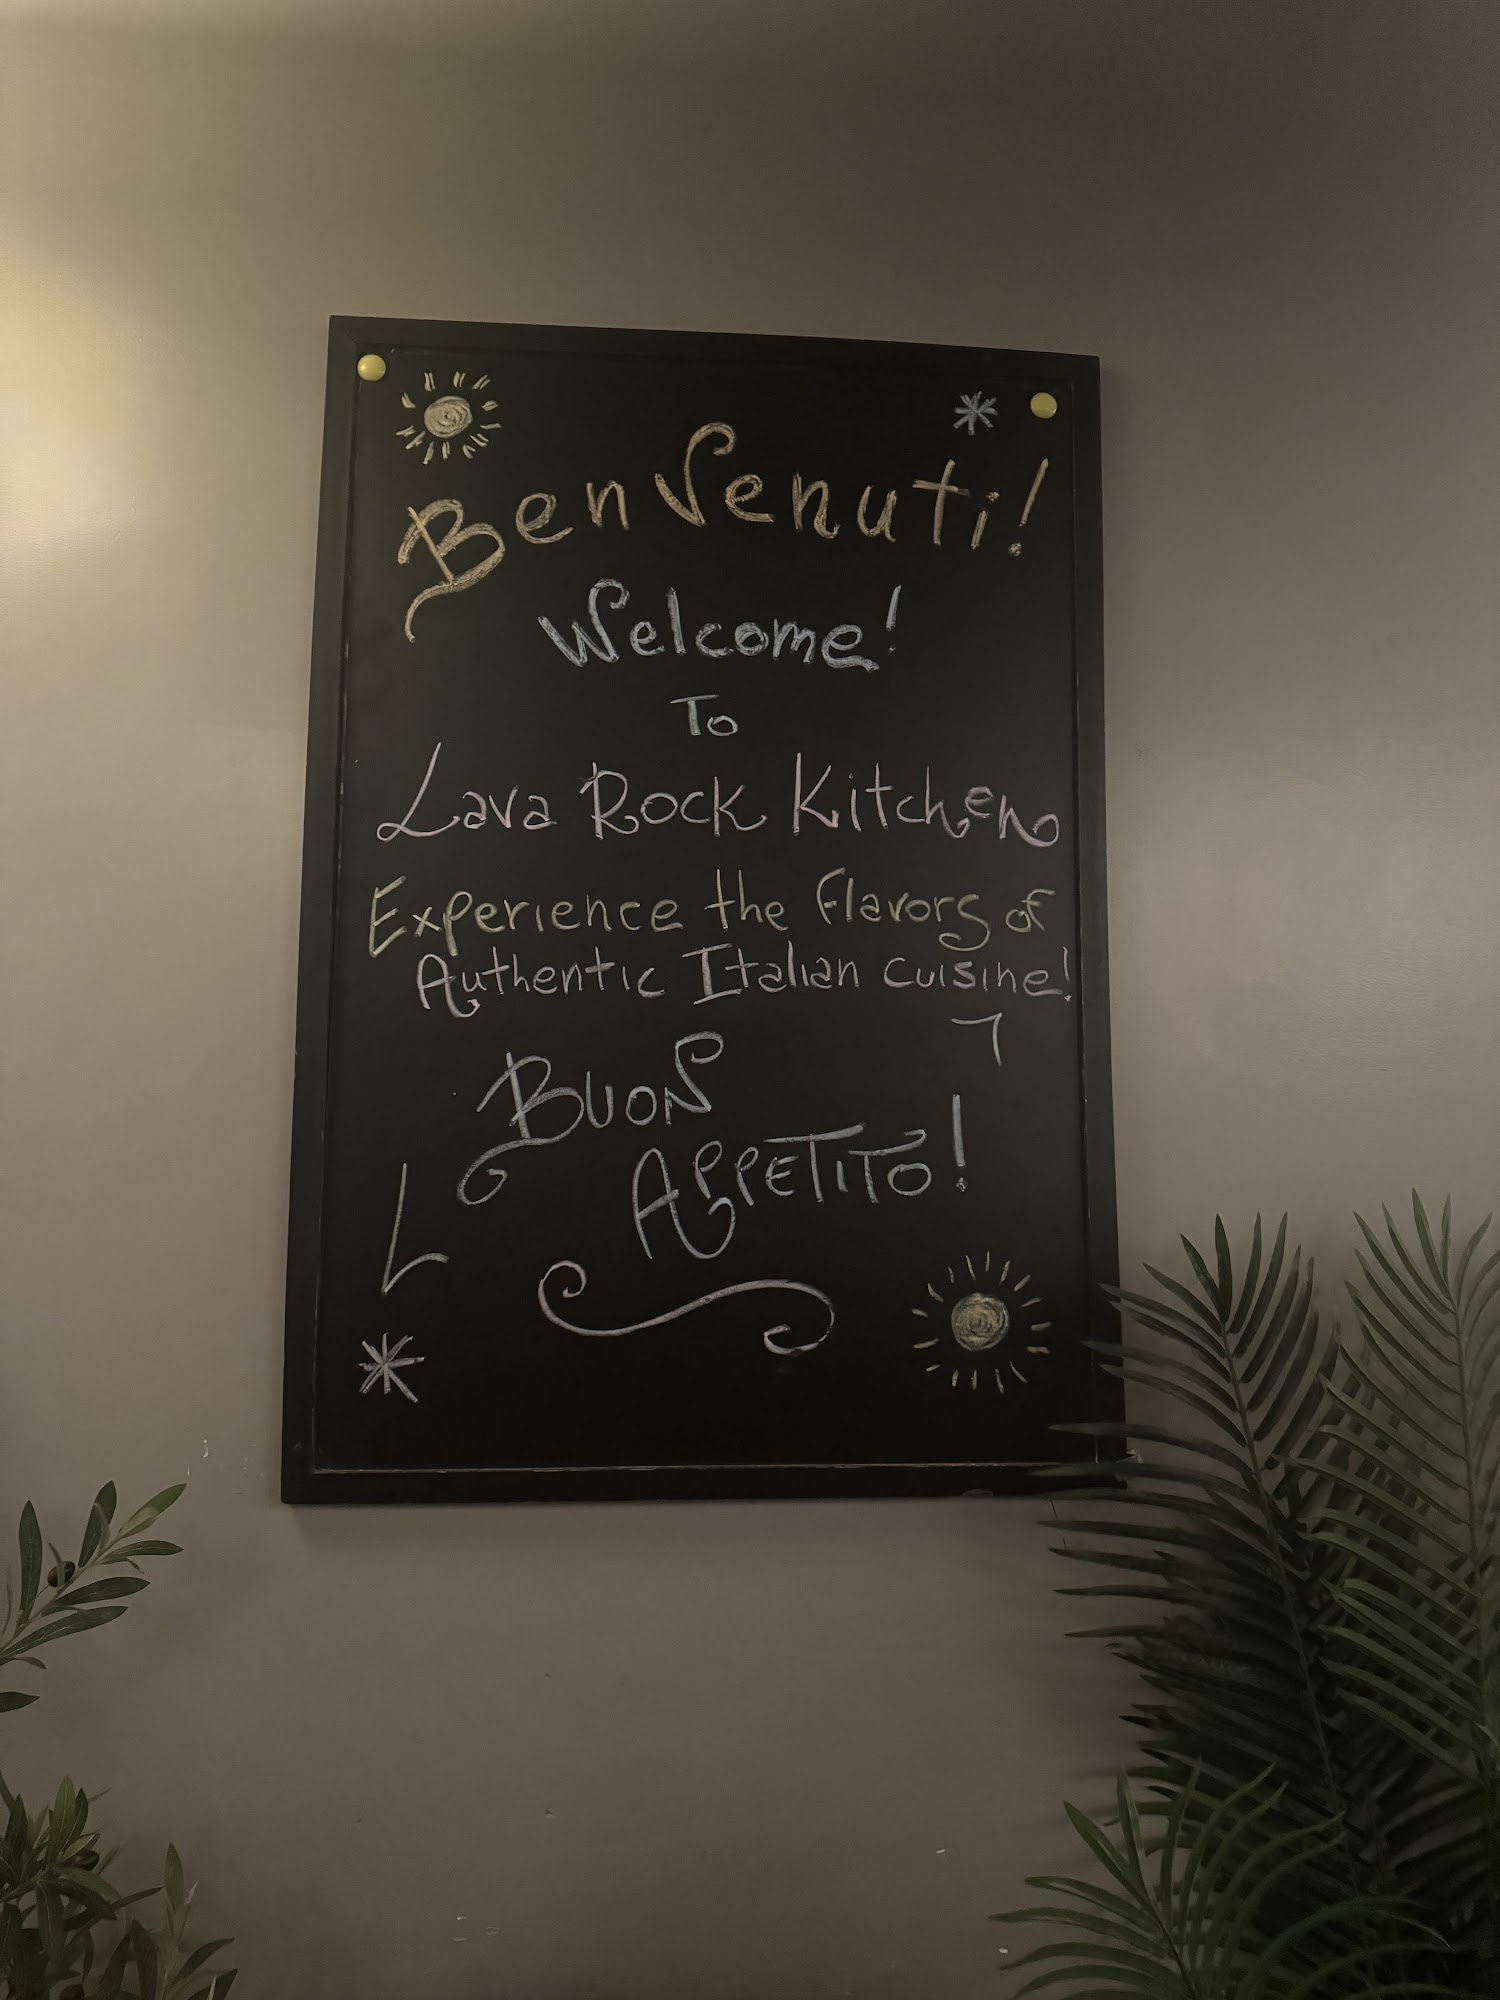 Benvenuti!
Welcome!
To
Lava Rock Kitchen
Experience the flavors of
Authentic Italian cuisine!
BUON
APPETITO!